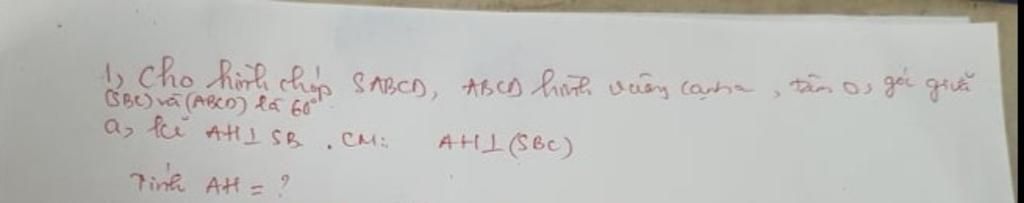 1, Cho hình chóp SABCD, ABCD hình vuông cạnh a, tâm O, góc giữa
(SBC) và (ABCD) là 60°
a, kẻ AH⊥SB. CM: AH⊥(SBC)
Tính AH = ?